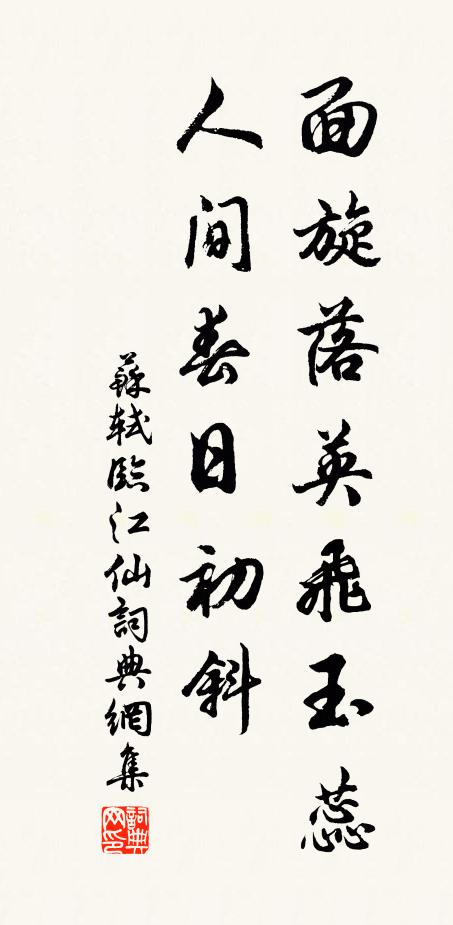 面旋落英飛玉蕊
人间春日初斜
蘇軾臨江仙詞典網集
詞典网印